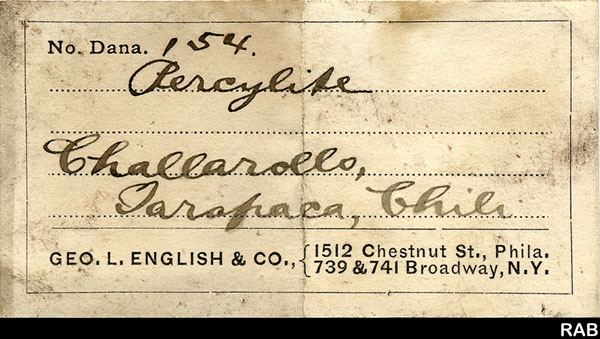 No. Dana. 154.
Percylite
Challarollo,
Tarapaca, Chili
GEO. L. ENGLISH & CO., { 1512 Chestnut St., Phila.
739 & 741 Broadway, N.Y.
RAB